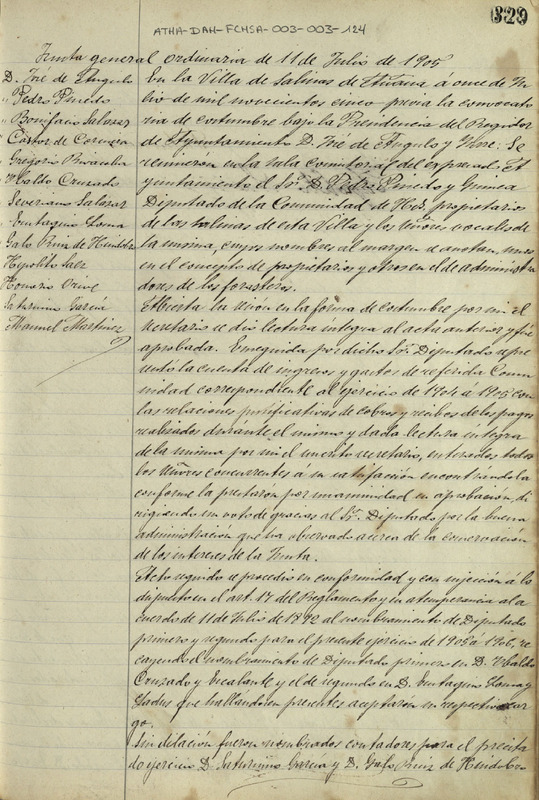 329
ATHA-DAH-FCMSA-003-003-124
Junta general ordinaria de 11 de Julio de 1905
D. José de Angulo
" Pedro Pinedo
" Bonifacio Salazar
Castor de Cervera
Gregorio
Ubaldo Cruzado
Severiano Salazar
Eustaquio Loma
Galo Ruiz de Huidobro
Hipolito Saez
Honorio Orive
Saturnino García
Manuel Martinez
En la Villa de Salinas de Añana á once de Ju
lio de mil novecientos cinco previa la convocato
ria de costumbre bajo la Presidencia del Regidor
de Ayuntamiento D. José de Angulo y se
reunieron en la sala consistorial del expresado A
yuntamiento el Sor. D. Pedro Pinedo y Guinea
Diputado de la Comunidad de Hros. propietarios
de las salinas de esta Villa y los señores vocales de
la misma, cuyos nombres al margen se anotan, unos
en el concepto de propietarios y otros en el de administra
dores de los forasteros.
Abierta la sesion en la forma de costumbre por mi el
secretario se dió lectura integra al acta anterior y fué
aprobada. Enseguida por dicho Sor. Diputado se pre
sentó la cuenta de ingresos y gastos de referida Comu
nidad correspondiente al ejercicio de 1904 á 1905 con
las relaciones justificativas de cobros y recibos de los pagos
realizados durante el mismo y dada lectura integra
de la misma por mi el infrascrito secretario, enterados todos
los señores concurrentes á su satisfación encontrándola
conforme la prestarón por unanimidad su aprobación, di
rigiendo un voto de gracias al Sor. Diputado por la buena
administración que ha observado acerca de la conservación
de los intereses de la Junta.
Acto seguido se procedio en conformidad y con sujeción á lo
dispuesto en el art. 17 del Reglamento y en atemperancia al a
cuerdo de 11 de Julio de 1892 al nombramiento de Diputado
primero y segundo para el presente ejercicio de 1905 á 1906, re
cayendo el nombramiento de Diputado primero en D. Ubaldo
Cruzado y Escalante y el de segundo en D. Eustaquio Loma y
que hallándose presentes aceptaron su respectivo car
go.
Sin dilación fueron nombrados contadores para el precita
do ejercicio D. Saturnino García y D. Galo Ruiz de Huidobro